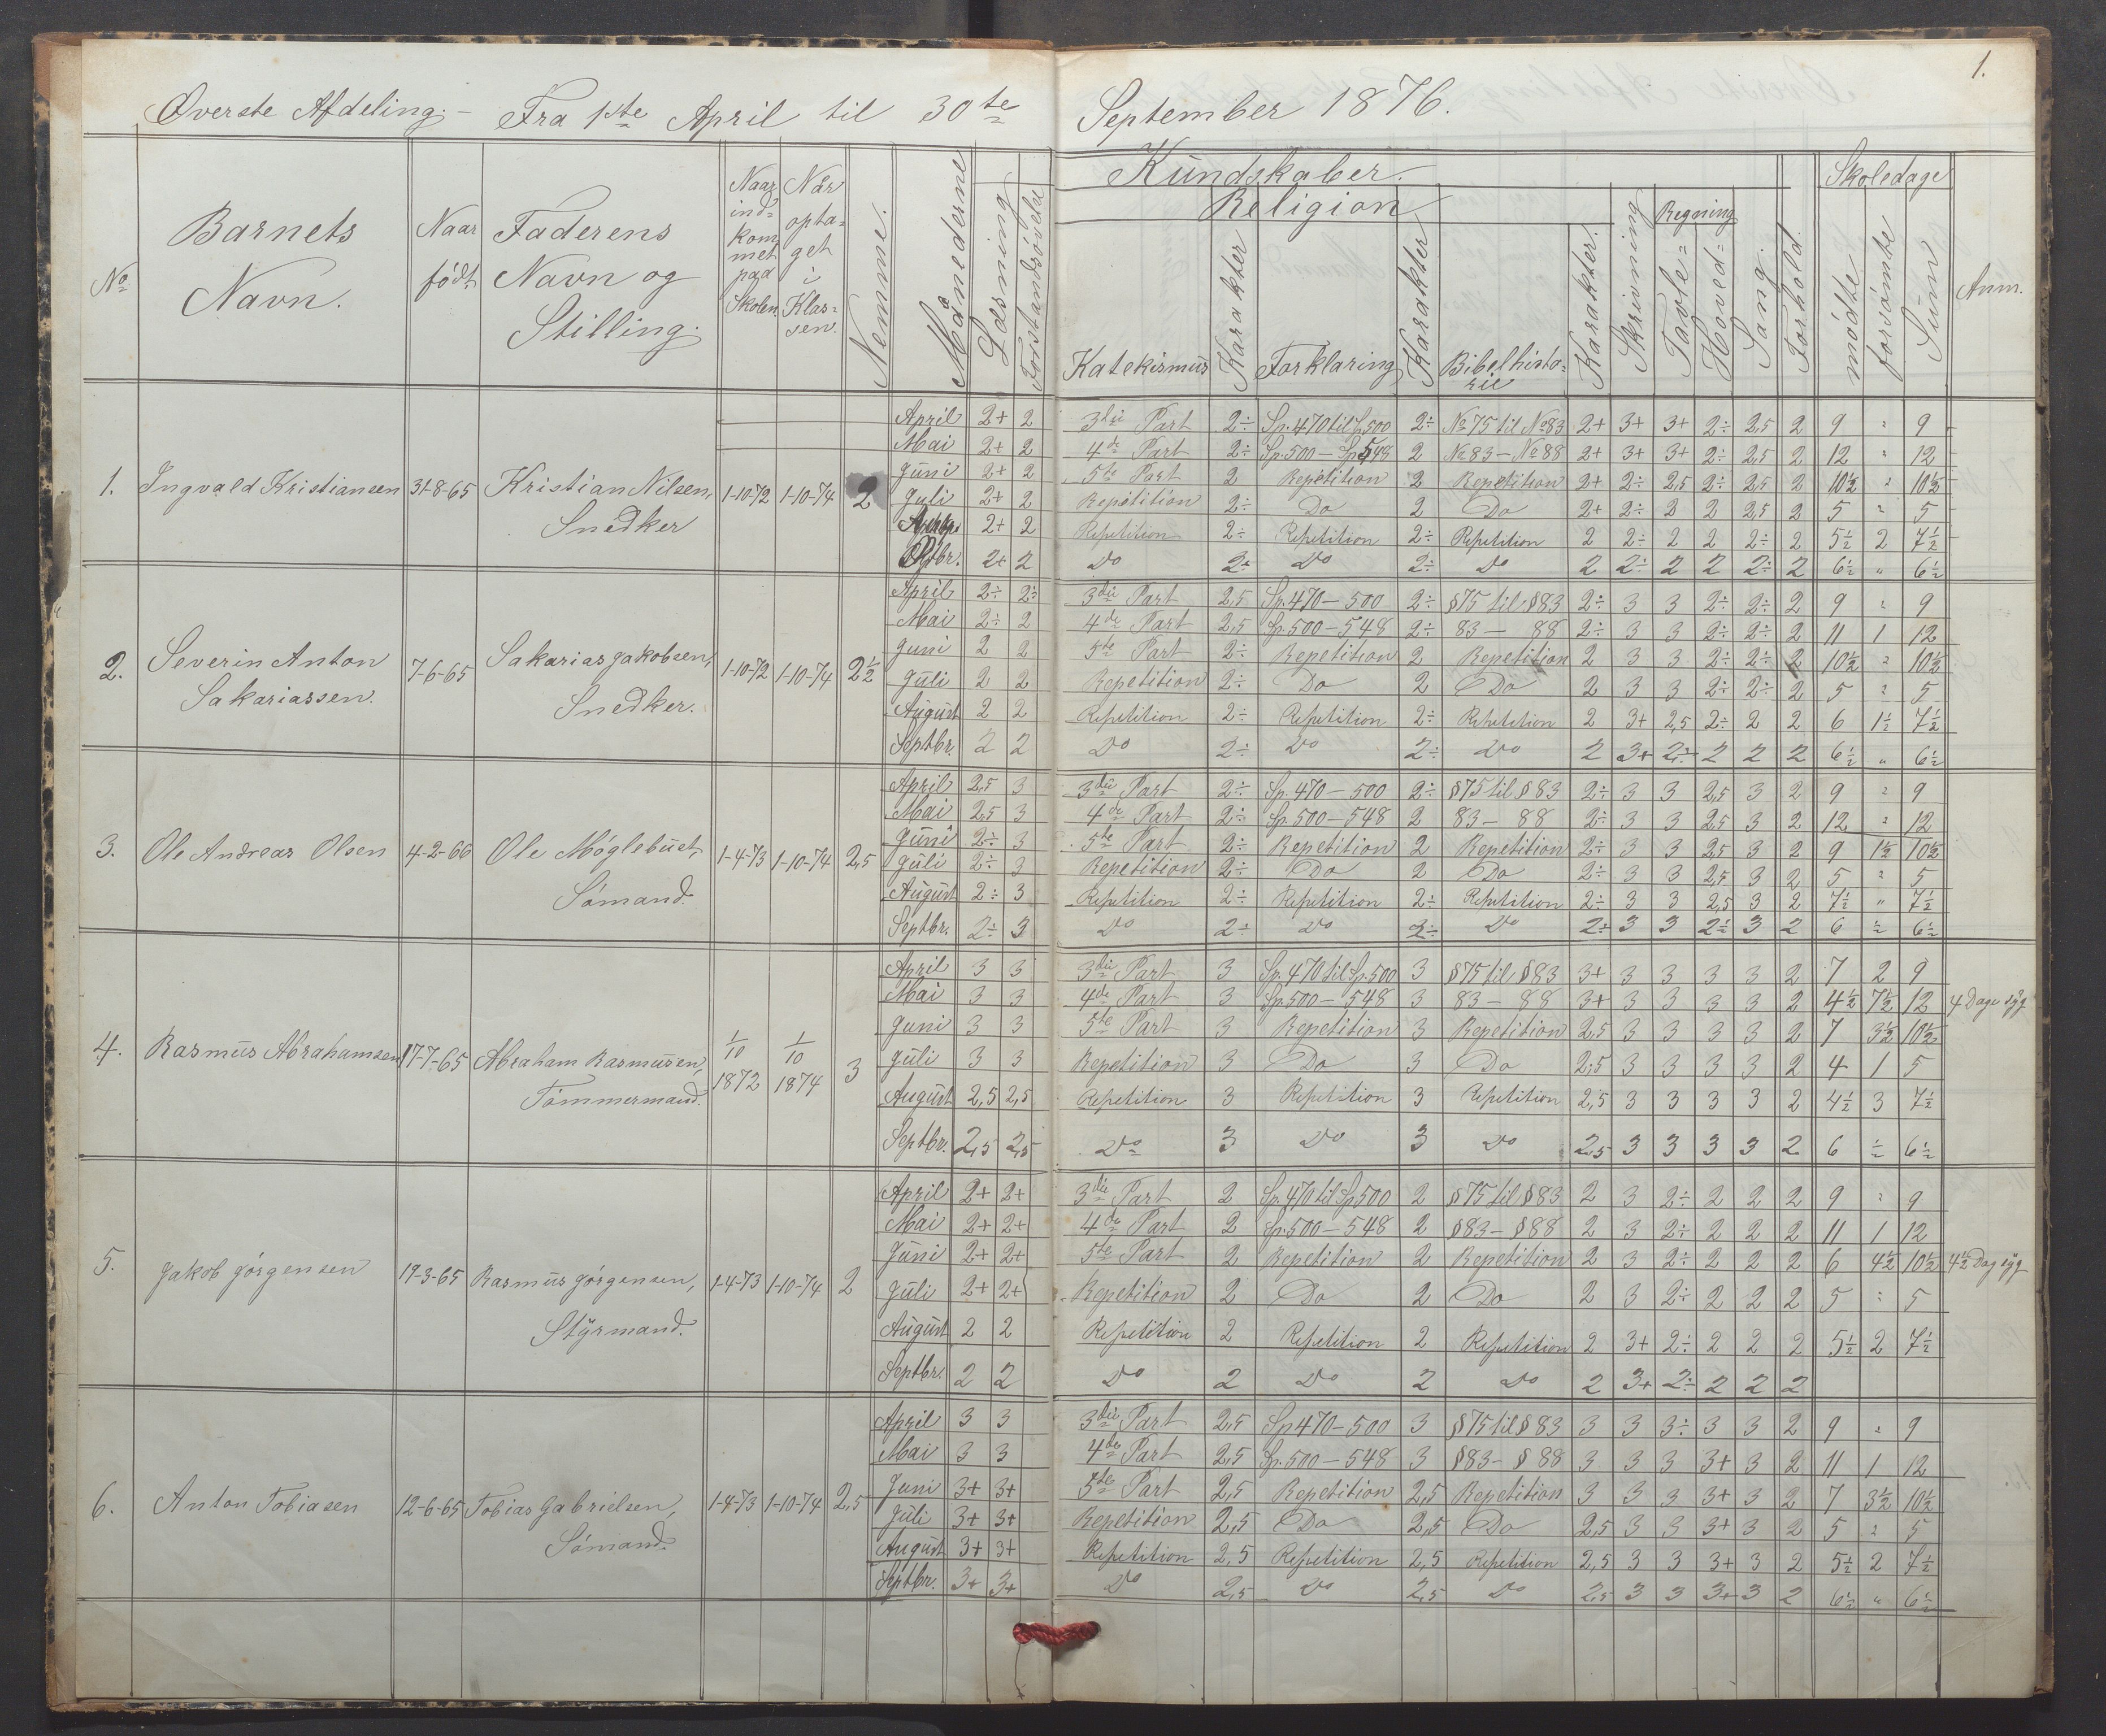 1.
Øverste Afdeling. – Fra 1ste April til 30te September 1876.
No
Barnets Navn.
Naar født
Faderens Navn og Stilling.
Naar ind= kom met paa Skolen
Når opta= get i Klas= sen.
Nemme.
Månederne
Læsning
Forstandsøvelse
Kundskaber.
Religion
Katekismus
Karakter
Forklaring
Karakter
Bibelhisto= rie
Karakter.
Skrivning
Regning
Tavle=
Hoved=
Sang.
Forhold.
Skoledage
mødte
forsømte
Sum
Anm.
1. Ingvald Kristiansen 31-8-65 Kristian Nilsen, Snedker 1-10-72 1-10-74 2
April 2+ 2 3die Part 2÷ Sp. 470 til Sp 500 2÷ No 75 til No 83 2+ 3+ 3+ 2÷ 2,5 2 9 " 9
Mai 2+ 2 4de Part 2÷ Sp. 500 – Sp 548 2 No 83 – No 88 2+ 3+ 3+ 2÷ 2,5 2 12 " 12
Juni 2+ 2 5te Part 2 Repetition 2 Repetition 2+ 2÷ 2,5 2÷ 2,5 2 10½ " 10½
Juli 2+ 2 Repetition 2÷ Do 2 Do 2+ 2÷ 2 2 2,5 2 5 " 5
2+ 2 Repetition 2÷ Repetition 2÷ Repetition 2 2÷ 2 2 2÷ 2 5½ 2 7½
2+ 2 Do 2÷ Do 2÷ Do 2 2÷ 2 2 2÷ 2 6½ " 6½
2. Severin Anton Sakariassen. 7-6-65 Sakarias Jakobsen, Snedker. 1-10-72 1-10-74 2½
April 2÷ 2÷ 3die Part 2,5 Sp. 470 – 500 2÷ §75 til §83 2÷ 3 3 2÷ 2÷ 2 9 " 9
Mai 2÷ 2 4de Part 2,5 Sp. 500 – 548 2÷ 83 – 88 2÷ 3 3 2÷ 2÷ 2 11 1 12
Juni 2 2 5te Part 2÷ Repetition 2 Repetition 2 3 3 2÷ 2÷ 2 10½ " 10½
Juli 2 2 Repetition 2÷ Do 2 Do 2 3 3 2÷ 2÷ 2 5 " 5
August 2 2 Repetition 2÷ Repetition 2÷ Repetition 2 3+ 2,5 2÷ 2 2 6 1½ 7½
Septbr. 2 2 Do 2÷ Do 2÷ Do 2 3+ 2÷ 2 2 2 6½ " 6½
3. Ole Andreas Olsen 4-2-66 Ole Møglebuet, Sømand. 1-4-73 1-10-74 2,5
April 2,5 3 3die Part 2÷ Sp. 470 – 500 2÷ §75 til §83 2÷ 3 3 2,5 3 2 9 " 9
Mai 2,5 3 4de Part 2÷ Sp. 500 – 548 2 83 – 88 2÷ 3 3 2,5 3 2 12 " 12
Juni 2÷ 3 5te Part 2÷ Repetition 2 Repetition 2÷ 3 3 2,5 3 2 9 1½ 10½
Juli 2÷ 3 Repetition 2÷ Do 2 Do 2÷ 3 3 2,5 3 2 5 " 5
August 2÷ 3 Repetition 2÷ Repetition 2÷ Repetition 2÷ 3 3 2,5 3 2 7½ " 7½
Septbr. 2÷ 3 Do 2÷ Do 2÷ Do 2÷ 3 3 2÷ 3 2 6 ½ 6½
4. Rasmus Abrahamsen 17-7-65 Abraham Rasmussen, Tømmermand. 1/10 1872 1/10 1874 3
April 3 3 3die Part 3 Sp. 470 til Sp. 500 3 §75 til §83 3+ 3 3 3 3 2 7 2 9
Mai 3 3 4de Part 3 Sp. 500 – 548 3 83 – 88 3+ 3 3 3 3 2 4½ 7½ 12 4 Dage syg
Juni 3 3 5te Part 3 Repetition 3 Repetition 2,5 3 3 3 3 2 7 3½ 10½
Juli 3 3 Repetition 3 Do 3 Do 2,5 3 3 3 3 2 4 1 5
August 2,5 2,5 Repetition 3 Repetition 3 Repetition 2,5 3 3 3 3 2 4½ 3 7½
Septbr. 2,5 2,5 Do 3 Do 3 Do 2,5 3 3 3 3 2 6 ½ 6½
5. Jakob Jørgensen 19-3-65 Rasmus Jørgensen, Styrmand. 1-4-73 1-10-74 2
April 2+ 2+ 3die Part 2 Sp. 470 til Sp 500 2 §75 til §83 2 3 2÷ 2 2 2 9 " 9
Mai 2+ 2+ 4de Part 2 Sp. 500 – 548 2 §83 – §88 2 3 2÷ 2 2 2 11 1 12
Juni 2+ 2+ 5te Part 2 Repetition 2 Repetition 2 3 2÷ 2 2 2 6 4½ 10½ 4½ Dag syg
Juli 2+ 2+ Repetition 2 Do 2 Do 2 3 2÷ 2 2 2 5 " 5
August 2 2 Repetition 2 Repetition 2 Repetition 2 3+ 2÷ 2 2 2 5½ 2 7½
Septbr. 2 2 Do 2 Do 2 Do 2 3+ 2÷ 2 2 2
6. Anton Tobiasen 12-6-65 Tobias Gabrielsen, Sømand. 1-4-73 1-10-74 2,5
April 3 3 3die Part 2,5 Sp 470 – 500 3 §75 til §83 3 3 3÷ 3 3 2 9 " 9
Mai 3 3 4de Part 2,5 Sp. 500 – 548 3 §83 – §88 3 3 3 3+ 3 2 11 1 12
Juni 3+ 3+ 5te Part 2,5 Repetition 2,5 Repetition 3 3 3 3+ 3 2 7 3½ 10½
Juli 3+ 3+ Repetition 2,5 Do 2,5 Do 2,5 3 3 3+ 3 2 5 " 5
August 3+ 3+ Repetition 2,5 Repetition 2,5 Repetition 2,5 3 3 3+ 3 2 5½ 2 7½
Septbr. 3+ 3+ Do 2,5 Do 2,5 Do 2,5 3 3 3+ 3 2 6½ " 6½